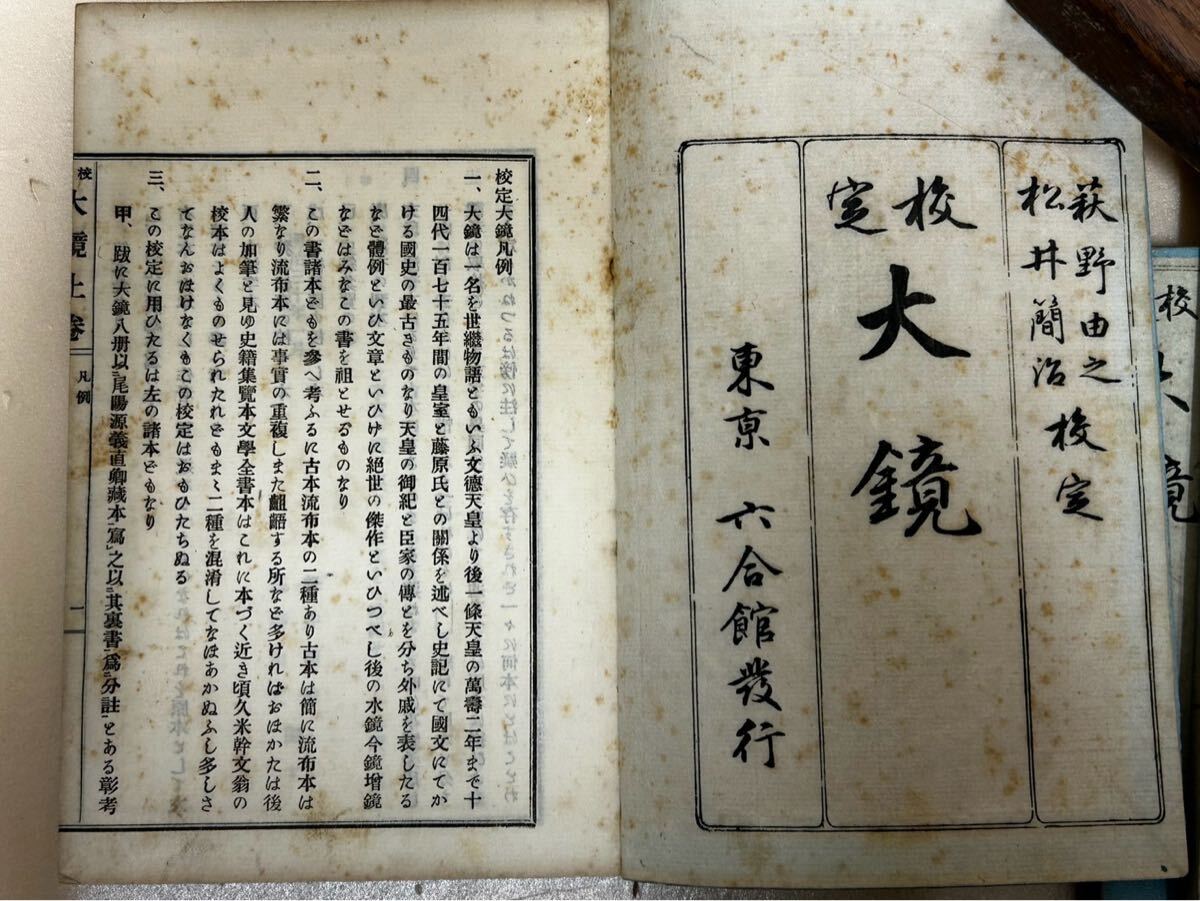 萩野由之
松井簡治校定
校定
大鏡
東京 六合館發行
校定大鏡凡例
一、大鏡は一名を世繼物語ともいふ文德天皇より後一條天皇の萬壽二年まで十
四代一百七十五年間の皇室と藤原氏との關係を述べし史記にて國文にてか
ける國史の最古きものなり天皇の御紀と臣家の傳とを分ち外戚を表したる
など體例といひ文章といひげに絕世の傑作といひつべし後の水鏡今鏡增鏡
などはみなこの書を祖とせるものなり
二、この書諸本どもを參へ考ふるに古本流布本の二種あり古本は簡に流布本は
繁なり流布本には事實の重複しまた齟齬する所など多ければおほかたは後
人の加筆と見ゆ史籍集覽本文學全書本はこれに本づく近き頃久米幹文翁の
校本はよくものせられたれどもまゝ二種を混淆してなほあかぬふし多しさ
てなんおほけなくもこの校定はおもひたちぬる
三、この校定に用ひたるは左の諸本どもなり
甲、跋に大鏡八册以尾陽源義直卿藏本寫之以其裏書爲分註とある彰考
校 大鏡上卷 凡例 一
校
大
鏡